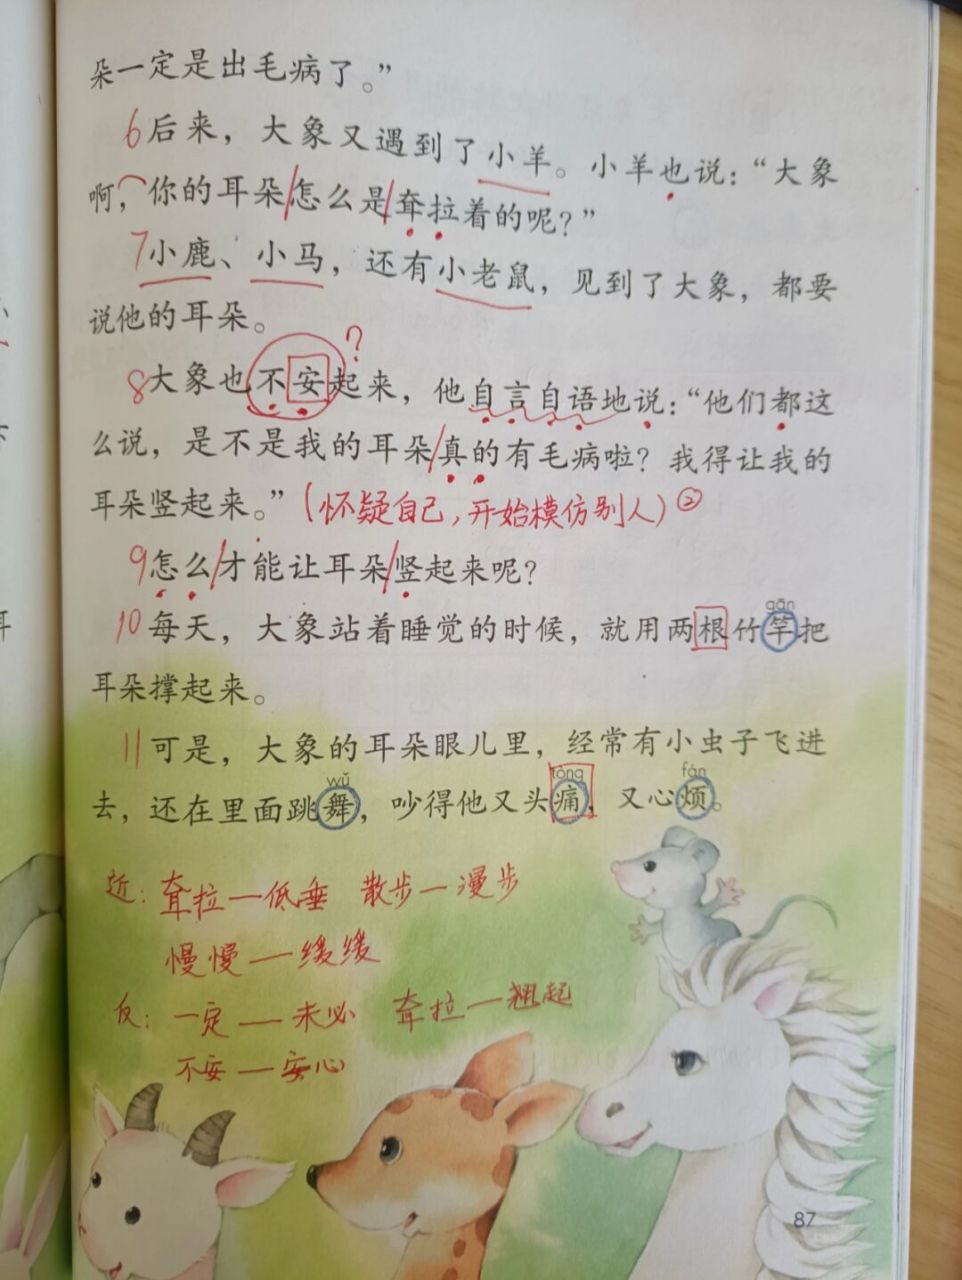 朵一定是出毛病了。”
6后来，大象又遇到了小羊。小羊也说：“大象
啊，你的耳朵怎么是耷拉着的呢？”
7小鹿、小马，还有小老鼠，见到了大象，都要
说他的耳朵。
?
8大象也不安起来，他自言自语地说：“他们都这
么说，是不是我的耳朵真的有毛病啦？我得让我的
耳朵竖起来。”（怀疑自己，开始模仿别人）②
9怎么才能让耳朵竖起来呢？
gān
10每天，大象站着睡觉的时候，就用两根竹竿把
耳朵撑起来。
11可是，大象的耳朵眼儿里，经常有小虫子飞进
wǔ tòng fán
去，还在里面跳舞，吵得他又头痛，又心烦。
近：耷拉—低垂 散步—漫步
慢慢—缓缓
反：一定—未必 耷拉—翘起
不安—安心
87